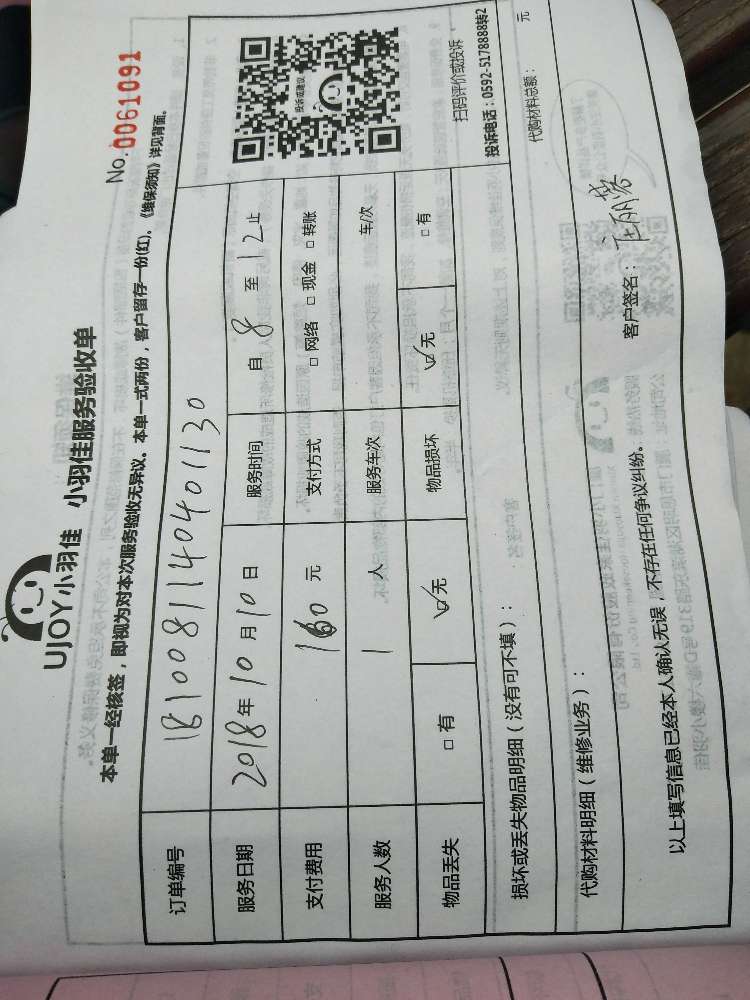 UJOY小羽佳 小羽佳服务验收单
No. 0061091
本单一经核签，即视为对本次服务验收无异议。本单一式两份，客户留存一份(红)。《维保须知》详见背面。
订单编号 181008114040401130
服务日期 2018年10月10日 服务时间 自 8 至 12 止
支付费用 160 元 支付方式 □ 网络 □ 现金 □ 转账
服务人数 1 人 服务车次 车/次
物品丢失 □ 有 ☑ 无 物品损坏 ☑ 无 □ 有
投诉或建议
扫码评价或投诉
投诉电话：0592-5178888转2
损坏或丢失物品明细（没有可不填）：
代购材料明细（维修业务）： 代购材料总额： 元
以上填写信息已经本人确认无误，不存在任何争议纠纷。 客户签名：